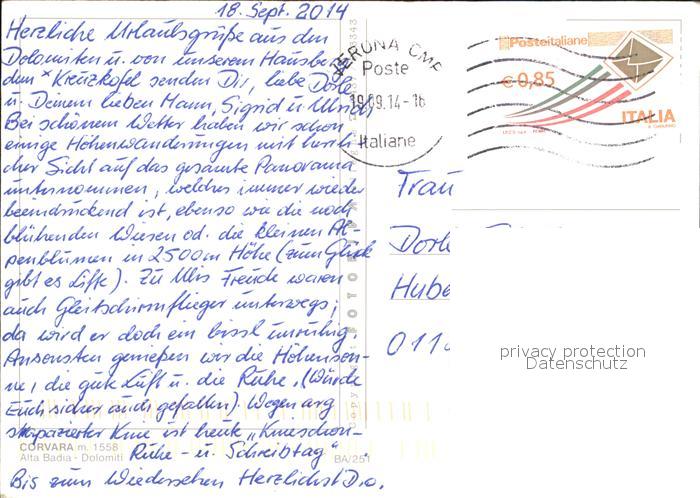 18. Sept. 2014
Herzliche Urlaubsgrüße aus den
Dolomiten u. von unserem Hausberg
dem Kreuzkofel senden Dir, liebe Dorle
u. Deinem lieben Mann, Sigrid u. Ulrich,
Bei schönem Wetter haben wir schon
einige Höhenwanderungen mit herrli-
cher Sicht auf das gesamte Panorama
unternommen, welches immer wieder
beeindruckend ist, ebenso wie die noch
blühenden Wiesen od. die kleinen Al-
penblumen in 2500m Höhe (zum Glück
gibt es Lifte). Zu Ulis Freude waren
auch Gleitschirmflieger unterwegs;
da wird er doch ein bissl unruhig.
Ansonsten genießen wir die Höhenson-
ne, die gute Luft u. die Ruhe. (Würde
Euch sicher auch gefallen) Wegen arg
strapazierter Knie ist heute „Knieschon-
Ruhe- u. Schreibtag".
Bis zum Wiedersehen Herzlichst D.o.
CORVARA m. 1558
Alta Badia - Dolomiti
BA/251
VERONA CMP
Poste
19.09.14-16
Italiane
Posteitaliane
€0,85
ITALIA
Frau
Dorle
Hube
011
privacy protection
Datenschutz